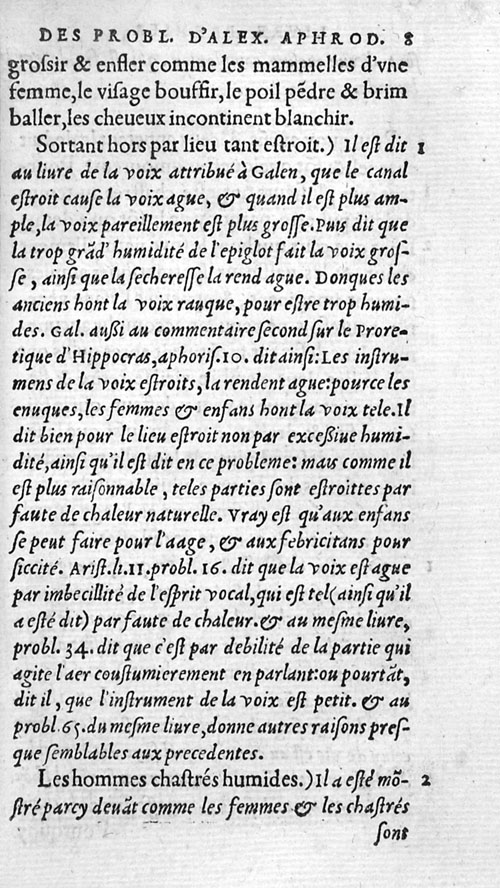 DES PROBL. D'ALEX. APHROD. 8
grossir & enfler comme les mammelles d'vne
femme, le visage bouffir, le poil pẽdre & brim
baller, les cheueux incontinent blanchir.
Sortant hors par lieu tant estroit.) Il est dit 1
au liure de la voix attribué à Galen, que le canal
estroit cause la voix ague, & quand il est plus am-
ple, la voix pareillement est plus grosse. Puis dit que
la trop grãd' humidité de l'epiglot fait la voix gros-
se, ainsi que la secheresse la rend ague. Donques les
anciens hont la voix rauque, pour estre trop humi-
des. Gal. aussi au commentaire second sur le Prore-
tique d'Hippocras, aphoris. 10. dit ainsi: Les instru-
mens de la voix estroits, la rendent ague: pource les
enuques, les femmes & enfans hont la voix tele. Il
dit bien pour le lieu estroit non par excessiue humi-
dité, ainsi qu'il est dit en ce probleme: mais comme il
est plus raisonnable, teles parties sont estroittes par
faute de chaleur naturelle. Vray est qu'aux enfans
se peut faire pour l'aage, & aux febricitans pour
siccité. Arist. li. 11. probl. 16. dit que la voix est ague
par imbecillité de l'esprit vocal, qui est tel (ainsi qu'il
a esté dit) par faute de chaleur. & au mesme liure,
probl. 34. dit que c'est par debilité de la partie qui
agite l'aer coustumierement en parlant: ou pourtãt,
dit il, que l'instrument de la voix est petit. & au
probl. 65. du mesme liure, donne autres raisons pres-
que semblables aux precedentes.
Les hommes chastrés humides.) Il a esté mõ- 2
stré parcy deuãt comme les femmes & les chastrés
sont